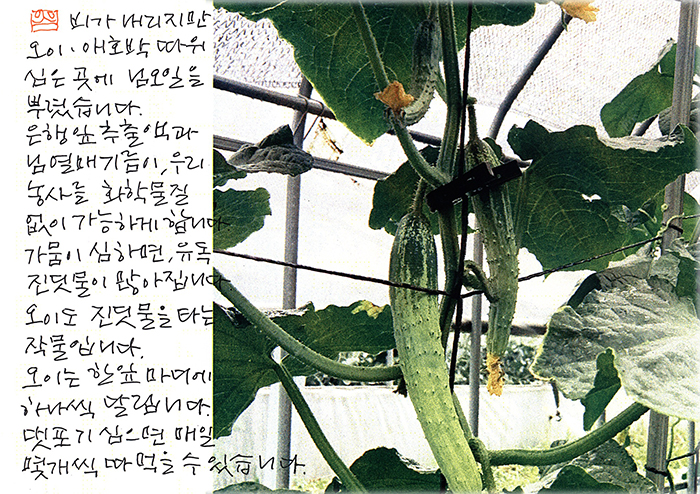 비가 내리지만
오이·애호박 따위
심은 곳에 님오일을
뿌렸습니다.
은행잎추출액과
님열매기름이, 우리
농사를 화학물질
없이 가능하게 합니다.
가뭄이 심하면, 유독
진딧물이 많아집니다.
오이도 진딧물을 타는
작물입니다.
오이는 한잎 마디에
하나씩 달립니다.
댓포기 심으면 매일
몇개씩 따 먹을 수 있습니다.